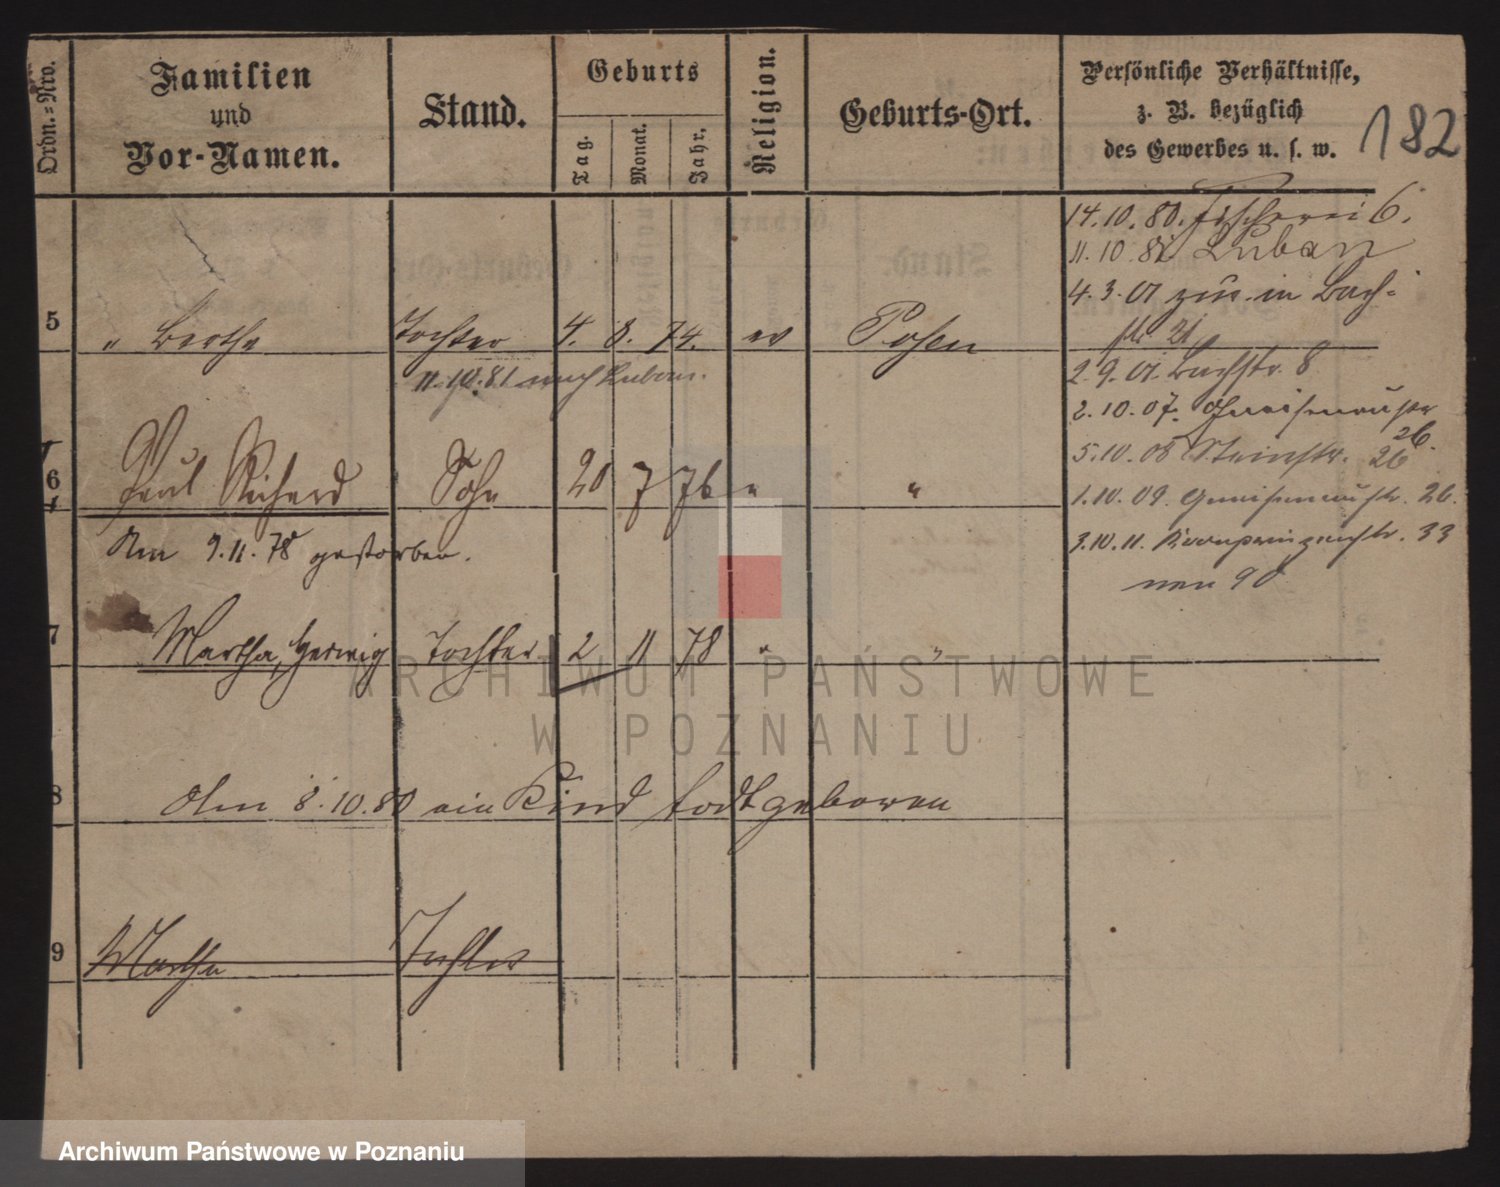 Ordn.=Nro.
Familien
und
Vor-Namen.
Stand.
Geburts
Tag.
Monat.
Jahr.
Religion.
Geburts-Ort.
Persönliche Verhältnisse,
z. B. bezüglich
des Gewerbes u. s. w.
182
14.10.80. Fischerei 6.
11.10.81 Luban
4.3.01 zur. in Bach-
str 21
5 " Bertha Tochter 4. 8. 74. ev Posen
11.10.81 nach Luban.
2.9.01. Bachstr. 8
2.10.07. Gneisenaustr
26.
5.10.08 Steinstr. 26
6 Paul Richard Sohn 20 7 76 " "
1.10.09. Gneisenaustr. 26.
Am 9.11.78 gestorben.
3.10.11. Kronprinzenstr. 33
neu 90
7 Martha, Hedwig Tochter 2 11 78 " "
8 Am 8.10.80 ein Kind todtgeboren
9 Martha Tochter
ARCHIWUM PAŃSTWOWE
W POZNANIU
Archiwum Państwowe w Poznaniu